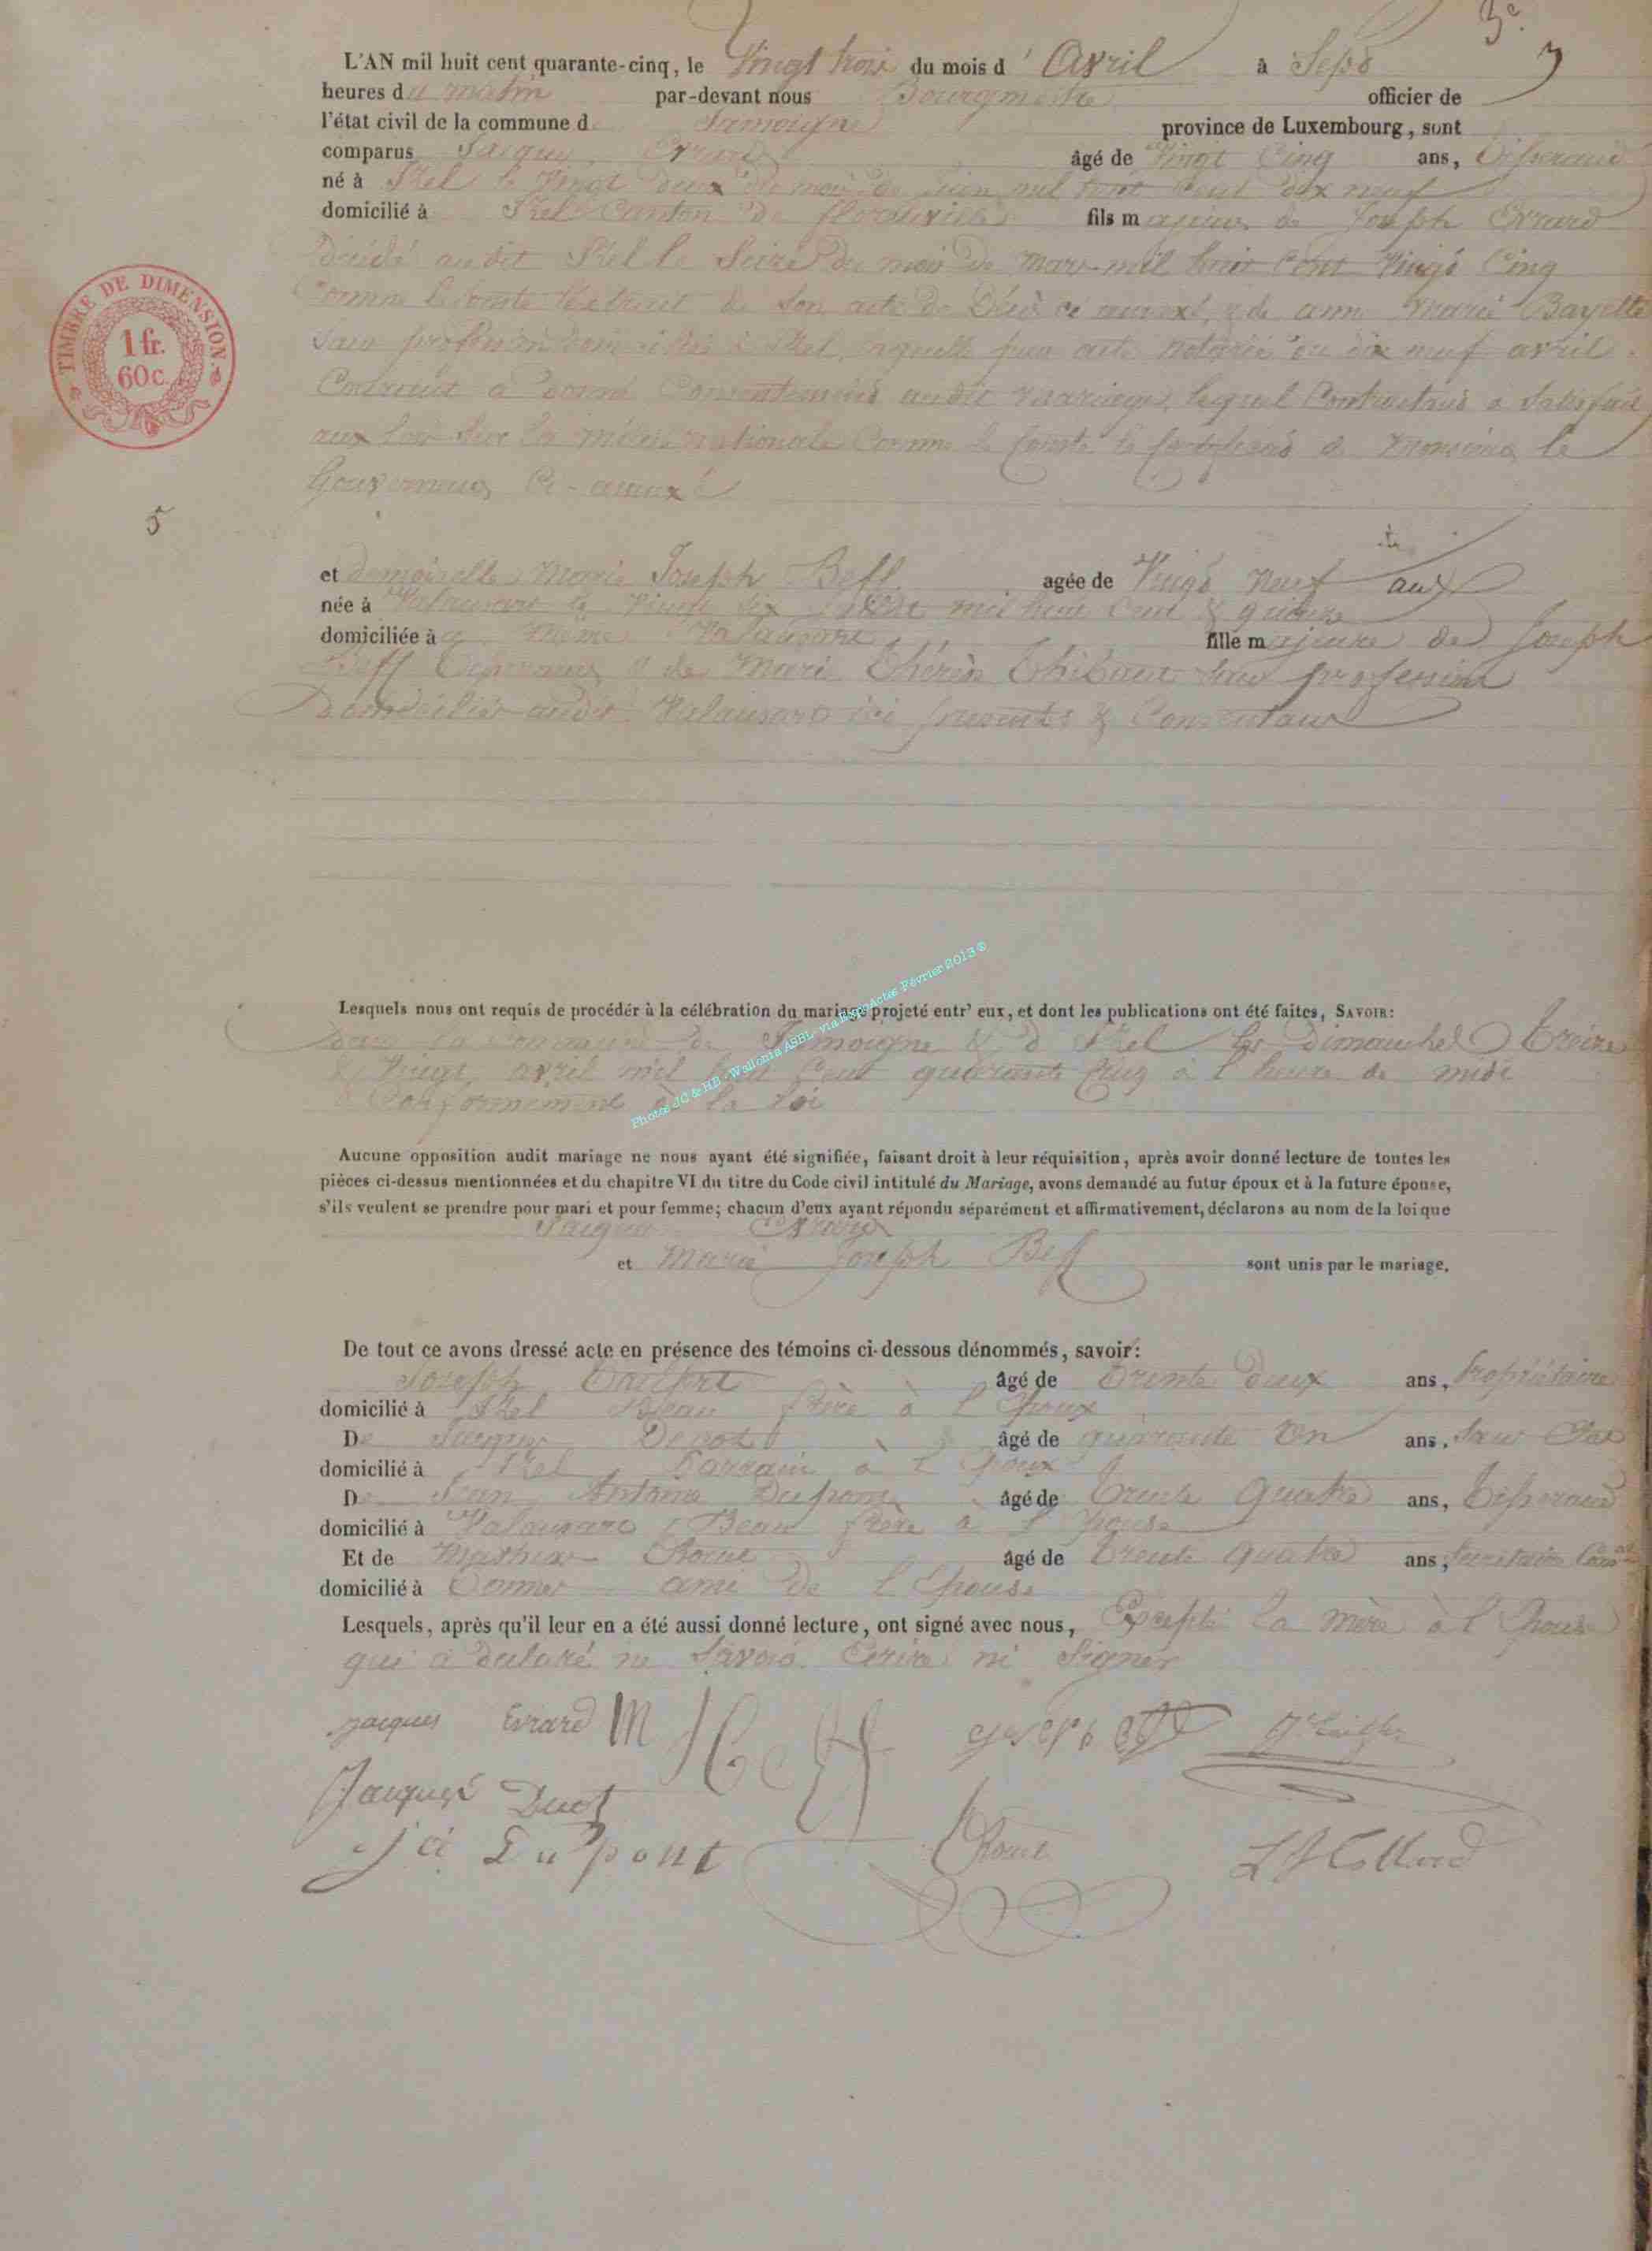 3e
L'AN mil huit cent quarante-cinq, le Vingt trois du mois d'Avril à Sept
heures du matin par-devant nous Bourgmestre officier de
l'état civil de la commune d Jamoigne province de Luxembourg, sont
comparus Jacques Evrard âgé de Vingt Cinq ans, Tisserand
né à le Vingt deux du mois de mil huit Cent dix neuf
domicilié à Canton de florenville fils majeur de Joseph Evrard
Décédé audit le Seize du mois de Mars mil huit Cent Vingt Cinq
Comme le Conste l'extrait de Son acte de Décès ci annexé, & de anne Marie Bayette
Sans profession domiciliée à laquelle par acte notarié du dix neuf avril
Courant a donné Consentement audit mariage, lequel Contractant a Satisfait
aux lois Sur la milice nationale Comme le Conste le Certificat de Monsieur le
Gouverneur Ci-annexé
5
et demoiselle Marie Joseph Beff agée de Vingt Neuf ans
née à Valansart le Vingt Six mil huit Cent & quinze
domiciliée à Valansart fille majeure de Joseph
Beff Tisserand & de Marie Thérèse Thibaut Sans profession
Domiciliés audit Valansart ici présents & Consentans
Lesquels nous ont requis de procédér à la célébration du mariage projeté entr' eux, et dont les publications ont été faites, SAVOIR:
Dans la commune de Jamoigne & d les Dimanches Treize
& Vingt avril mil huit Cent quarante Cinq à l'heure de midi
Conformément à la Loi
Photos JC & HB - Wallonia ASBL - via ExpoActes Février 2013 ©
Aucune opposition audit mariage ne nous ayant été signifiée, faisant droit à leur réquisition, après avoir donné lecture de toutes les
pièces ci-dessus mentionnées et du chapitre VI du titre du Code civil intitulé du Mariage, avons demandé au futur époux et à la future épouse,
s'ils veulent se prendre pour mari et pour femme; chacun d'eux ayant répondu séparément et affirmativement, déclarons au nom de la loi que
Jacques Evrard
et Marie Joseph Beff sont unis par le mariage.
De tout ce avons dressé acte en présence des témoins ci-dessous dénommés, savoir:
Joseph âgé de Trente deux ans, Propriétaire
domicilié à Beau frère à l'Epoux
De Jacques âgé de quarante Un ans, Sans Etat
domicilié à Parrain à l'Epoux
De Jean Antoine Dupont âgé de Trente Quatre ans, Tisserand
domicilié à Valansart Beau frère à l'Epouse
Et de Mathieu âgé de Trente Quatre ans, Secrétaire Comal
domicilié à ami de l'Epouse
Lesquels, après qu'il leur en a été aussi donné lecture, ont signé avec nous, Excepté la mère à l'Epouse
qui a déclaré ne Savoir Ecrire ni Signer
jacques Evrard M J Beff joseph Beff
Jacques
j a Dupont Collard
TIMBRE DE DIMENSION
1 fr.
60c.